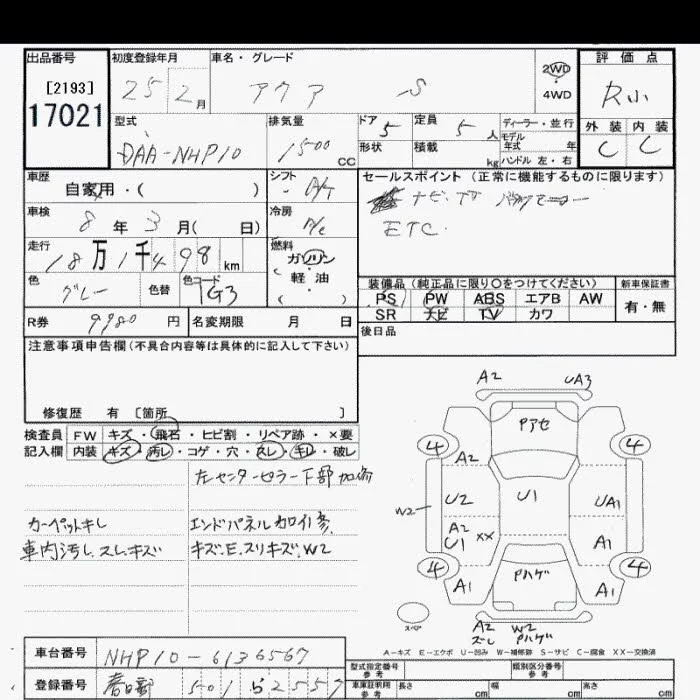 出品番号 初度登録年月 車名・グレード 2WD 評価点
[2193] 25 2月 アクア S 4WD R小
17021
型式 排気量 ドア 5 定員 5人 ディーラー・並行 外装 内装
DAA-NHP10 1500 CC 形状 積載 kg モデル年式 年 C C
ハンドル 左・右
車歴 シフト セールスポイント (正常に機能するものに限ります)
自家用・( ) A/T ナビ、TV バックモニター
車検 冷房 ETC.
8年 3月( 日) A/C
走行 燃料
18万1千498 km ガソリン
軽・油
( )
色 色替 色コード 装備品 (純正品に限り〇をつけてください) 新車保証書
グレー 1G3 PS PW ABS エアB AW 有・無
SR ナビ TV カワ
R券 9980円 名変期限 月 日 後日品
注意事項申告欄 (不具合内容等は具体的に記入して下さい)
修復歴 有 [箇所 ]
検査員 FW キズ・飛石・ヒビ割・リペア跡・×要
記入欄 内装 キズ・汚レ・コゲ・穴・スレ・キレ・破レ
左センターピラー下部加修
カーペットキレ エンドパネル加修
車内汚レ.スレ.キズ キズ.E.スリキズ.W2
A2 UA3
Pアセ
4 4
A2
W2 U2 U1 UA1
A2 U1 XX A1
4 4
A1 Pハゲ A1
スペア
A2 W2
ズレ Pハゲ
A-キズ E-エクボ U-凹み W-補修跡 S-サビ C-腐食 XX-交換済
車台番号 NHP10-6136567
登録番号 春日部 501 ら 2557
型式指定番号 参考 類別区分番号 参考
車庫証明用 参考 長さ cm 幅 cm 高さ cm